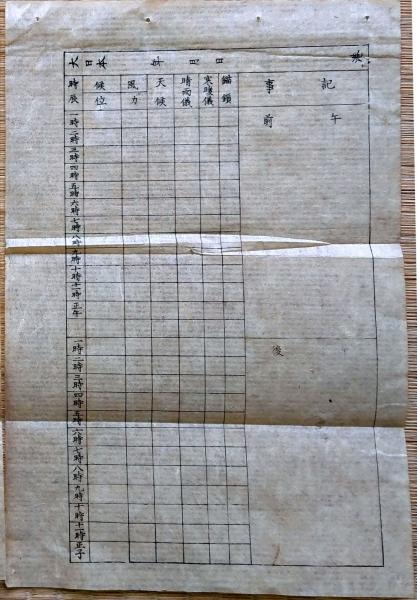 大日本 年 月 日
時辰
候位
風力
天候
晴雨儀
寒暖儀
錨鎖
記事
午前
一時
二時
三時
四時
五時
六時
七時
八時
九時
十時
十一時
正午
後
一時
二時
三時
四時
五時
六時
七時
八時
九時
十時
十一時
正子